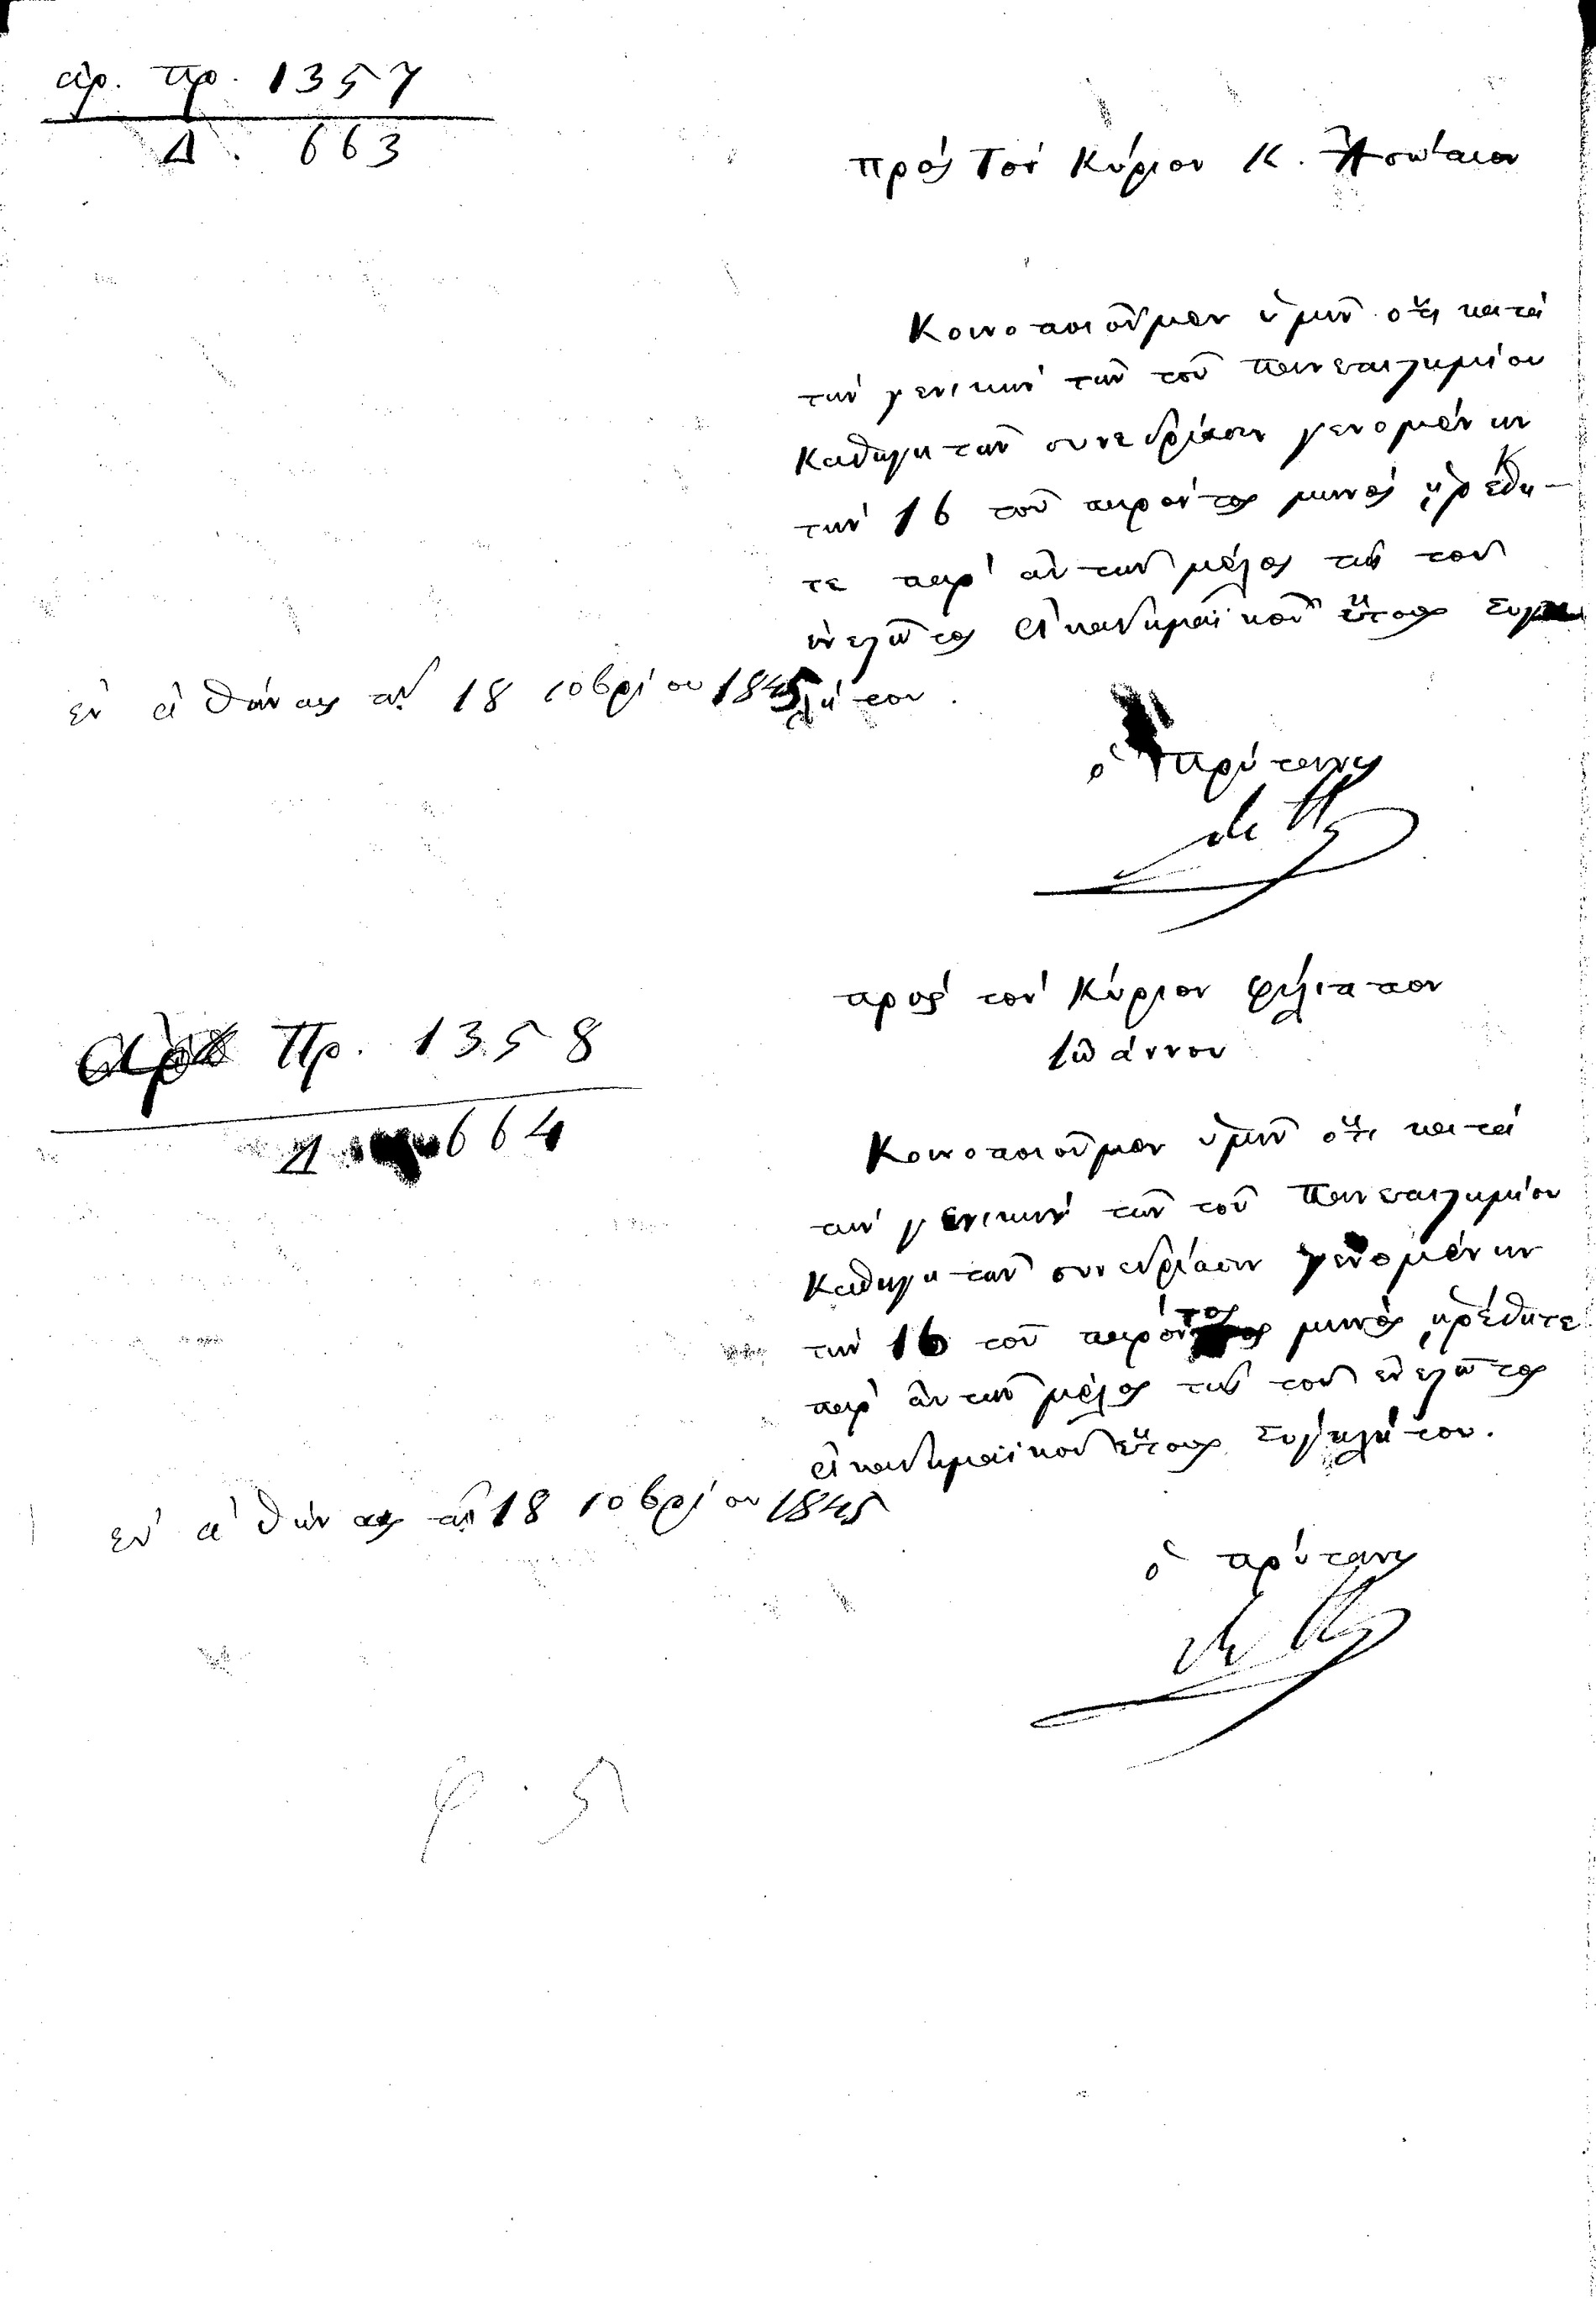 ἀρ. πρ. 1357
Δ. 663
πρὸς Τὸν Κύριον Κ. Ἀσώπιον
Κοινοποιοῦμεν ὑμῖν ὅτι κατὰ
τὴν γενικὴν τῶν τοῦ Πανεπιστημίου
Καθηγητῶν συνεδρίασιν γενομένην
τὴν 16 τοῦ παρόντος μηνὸς ᾑρέθη-
τε παρ' αὐτῶν μέλος τῆς τοῦ
ἐνεστῶτος Ἀκαδημαϊκοῦ ἔτους Συγκ
λήτου.
ἐν Ἀθήναις τῇ 18 10βρίου 1845
ὁ πρύτανις
πρὸς τὸν Κύριον φίλιππον
Ἰωάννου
πρ. 1358
Δ 664
Κοινοποιοῦμεν ὑμῖν ὅτι κατὰ
τὴν γενικὴν τῶν τοῦ Πανεπιστημίου
Καθηγητῶν συνεδρίασιν γενομένην
τὴν 16 τοῦ παρόντος μηνὸς ᾑρέθητε
παρ' αὐτῶν μέλος τῆς τοῦ ἐνεστῶτος
Ἀκαδημαϊκοῦ ἔτους Συγκλήτου.
ἐν Ἀθήναις τῇ 18 10βρίου 1845
ὁ πρύτανις